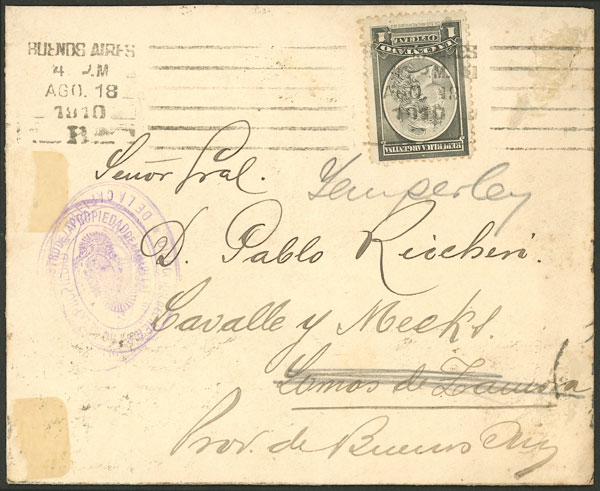 BUENOS AIRES
4. P.M
AGO. 18
1910
OFICIAL
1 CENTAVO 1
REPUBLICA ARGENTINA
Señor Gral.
Temperley
D. Pablo Riccheri.
Lavalle y Meeks.
Lomas de Zamora
Prov. de Buenos Aires
PROPIEDAD
DE LA